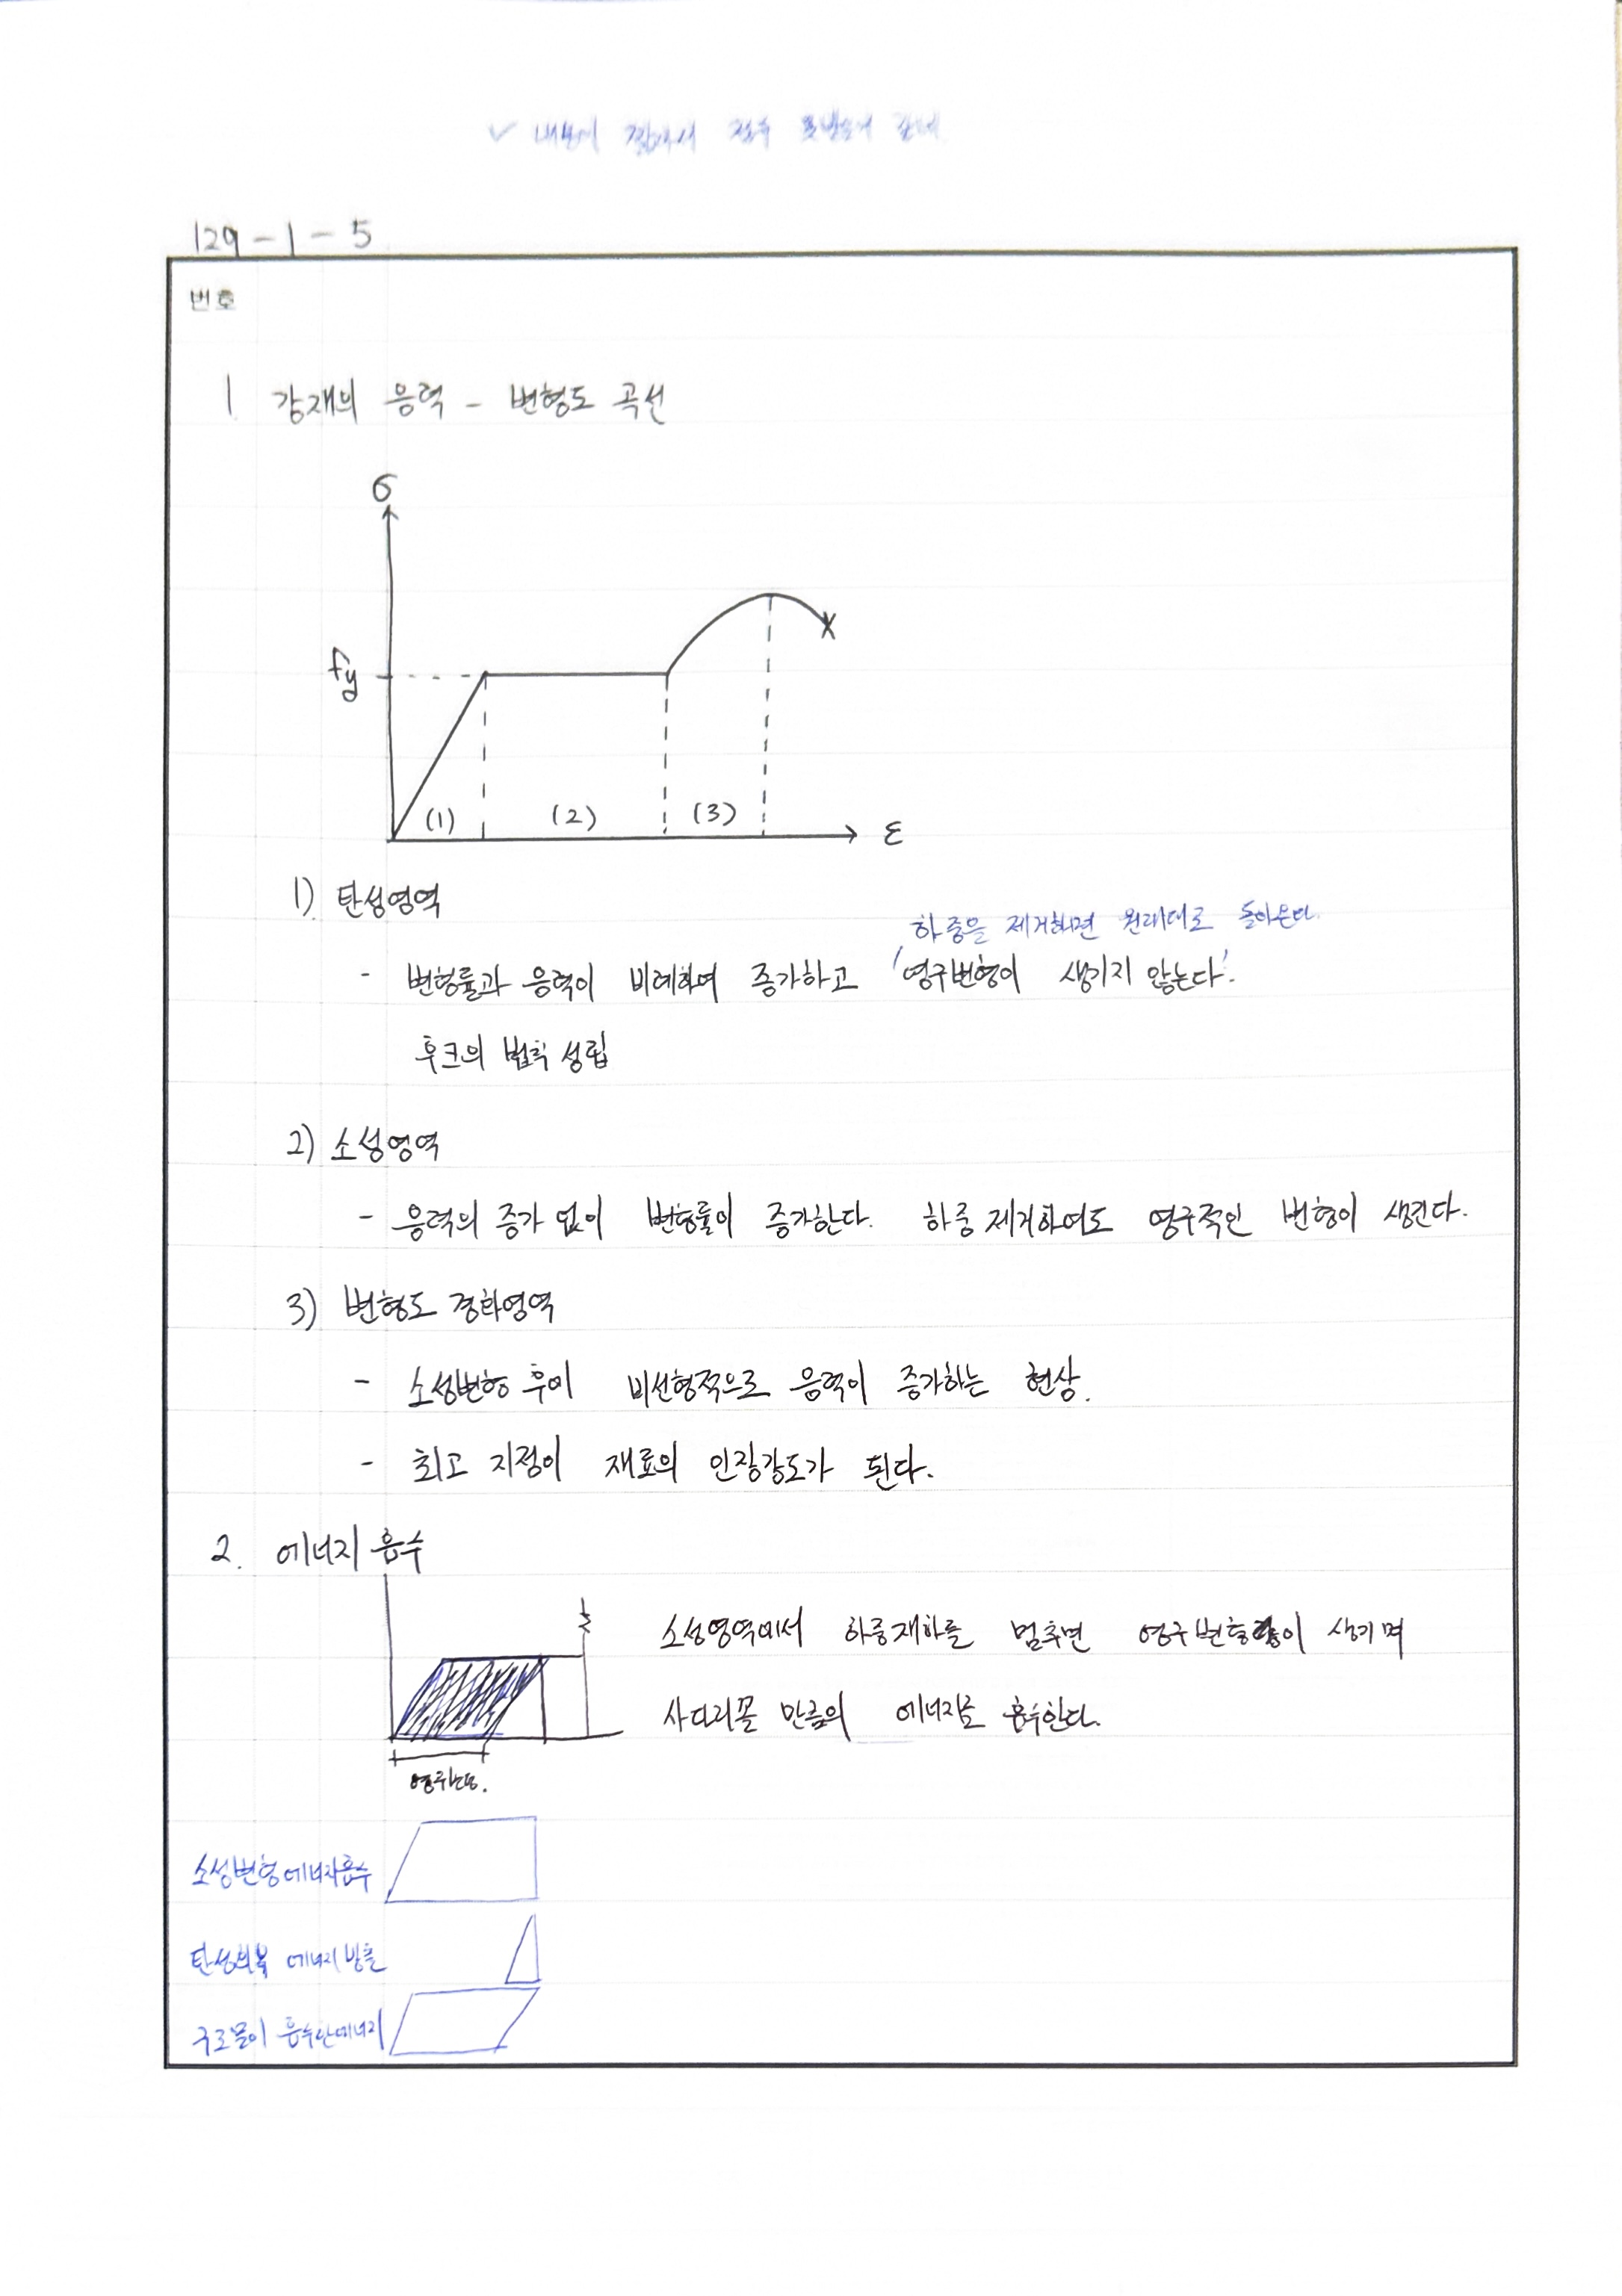 ✓ 내용이 짧아서 점수 못받은거 같네
129 - 1 - 5
번호
1 강재의 응력 - 변형도 곡선
σ
fy
(1) (2) (3)
ε
1) 탄성영역
하중을 제거하면 원래대로 돌아온다.
- 변형률과 응력이 비례하여 증가하고 '영구변형이 생기지 않는다'.
후크의 법칙 성립
2) 소성영역
- 응력의 증가 없이 변형률이 증가한다. 하중 제거하여도 영구적인 변형이 생긴다.
3) 변형도 경화영역
- 소성변형 후에 비선형적으로 응력이 증가하는 현상.
- 최고 지점이 재료의 인장강도가 된다.
2. 에너지 흡수
소성영역에서 하중재하를 멈추면 영구변형이 생기며
사다리꼴 만큼의 에너지를 흡수한다.
영구변형.
소성변형에너지흡수
탄성회복 에너지 방출
구조물이 흡수한에너지